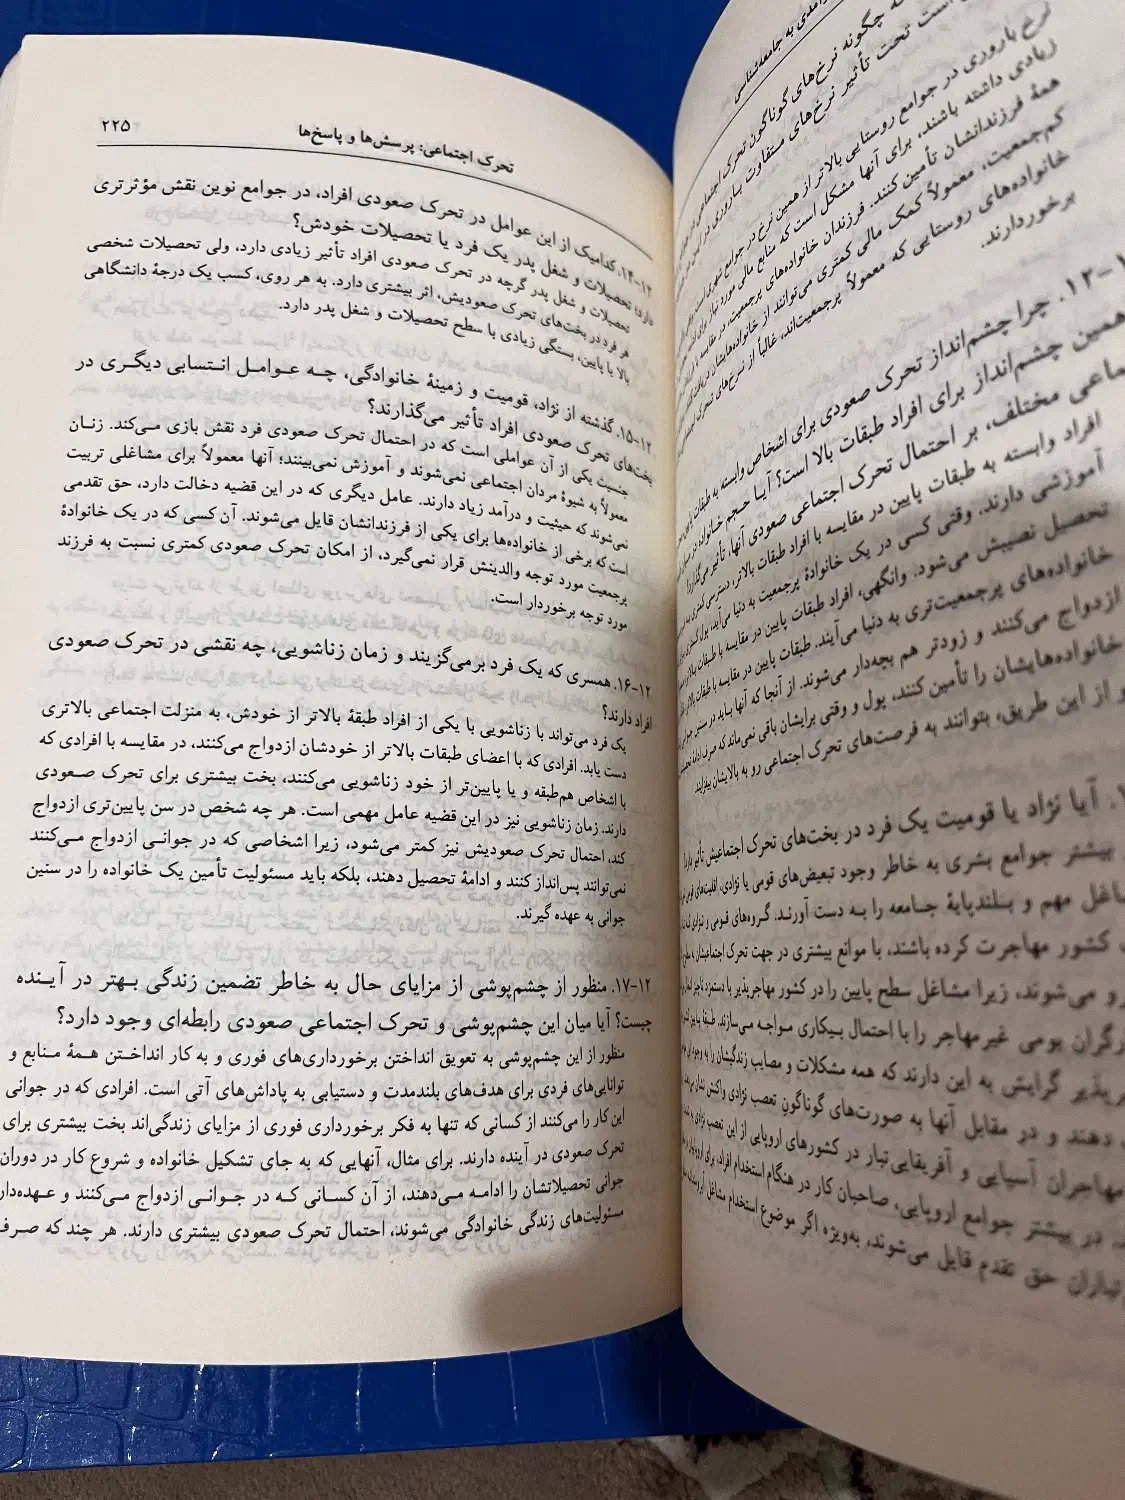 درآمدی به جامعه‌شناسی
چگونه نرخ‌های گوناگون تحرک اجتماعی
است تحت تأثیر نرخ‌های متفاوت باروری در این
نرخ باروری در جوامع روستایی بالاتر از همین نرخ در جوامع شهری است
زیادی داشته باشند، برای آنها مشکل است که منابع مالی مورد نیاز برای
همهٔ فرزندانشان تأمین کنند. فرزندان خانواده‌های پرجمعیت، در مقایسه با
کم‌جمعیت، معمولاً کمک مالی کمتری می‌توانند از خانواده‌هایشان دریافت کنند
خانواده‌های روستایی که معمولاً پرجمعیت‌اند، غالباً از نرخ‌های تحرک
برخوردارند.
۱۲-. چرا چشم‌انداز تحرک صعودی برای اشخاص وابسته به طبقات
همین چشم‌انداز برای افراد طبقات بالا است؟ آیا حجم خانواده در
مختلف، بر احتمال تحرک اجتماعی صعودی آنها، تأثیر می‌گذارد؟
افراد وابسته به طبقات پایین در مقایسه با افراد طبقات بالاتر، دسترسی کمتری به
آموزشی دارند. وقتی کسی در یک خانوادهٔ پرجمعیت به دنیا می‌آید، پول کمتری برای
تحصیل نصیبش می‌شود. وانگهی، افراد طبقات پایین در مقایسه با طبقات بالاتر
خانواده‌های پرجمعیت‌تری به دنیا می‌آیند. طبقات پایین در مقایسه با طبقات بالاتر
ازدواج می‌کنند و زودتر هم بچه‌دار می‌شوند. از آنجا که آنها باید در سنین
خانواده‌هایشان را تأمین کنند، پول و وقتی برایشان باقی نمی‌ماند که صرف ادامهٔ
و از این طریق، بتوانند به فرصت‌های تحرک اجتماعی رو به بالایشان بیفزایند.
آیا نژاد یا قومیت یک فرد در بخت‌های تحرک اجتماعیش تأثیر دارد؟
بیشتر جوامع بشری به خاطر وجود تبعیض‌های قومی یا نژادی، اقلیت‌های قومی
مشاغل مهم و بلندپایهٔ جامعه را به دست آورند. گروه‌های قومی و نژادی که
کشور مهاجرت کرده باشند، با موانع بیشتری در جهت تحرک اجتماعیشان
رو می‌شوند، زیرا مشاغل سطح پایین را در کشور مهاجرپذیر با دستمزد
کارگران بومی غیرمهاجر را با احتمال بیکاری مواجه می‌سازند.
گرایش به این دارند که همه مشکلات و مصایب زندگیشان را
دهند و در مقابل آنها به صورت‌های گوناگونِ تعصب نژادی واکنش نشان می‌دهند.
مهاجران آسیایی و آفریقایی‌تبار در کشورهای اروپایی از این تعصب نژادی
در بیشتر جوامع اروپایی، صاحبان کار در هنگام استخدام افراد، برای
حق تقدم قایل می‌شوند، به‌ویژه اگر موضوع استخدام مشاغل
تحرک اجتماعی: پرسش‌ها و پاسخ‌ها ۲۲۵
۱۲-۱۴. کدامیک از این عوامل در تحرک صعودی افراد، در جوامع نوین نقش مؤثرتری
دارد: تحصیلات و شغل پدر یک فرد یا تحصیلات خودش؟
تحصیلات و شغل پدر گرچه در تحرک صعودی افراد تأثیر زیادی دارد، ولی تحصیلات شخصی
هر فرد در بخت‌های تحرک صعودیش، اثر بیشتری دارد. به هر روی، کسب یک درجهٔ دانشگاهی
بالا یا پایین، بستگی زیادی با سطح تحصیلات و شغل پدر دارد.
۱۲-۱۵. گذشته از نژاد، قومیت و زمینهٔ خانوادگی، چه عوامل انتسابی دیگری در
بخت‌های تحرک صعودی افراد تأثیر می‌گذارند؟
جنسیت یکی از آن عواملی است که در احتمال تحرک صعودی فرد نقش بازی می‌کند. زنان
معمولاً به شیوهٔ مردان اجتماعی نمی‌شوند و آموزش نمی‌بینند؛ آنها معمولاً برای مشاغلی تربیت
نمی‌شوند که حیثیت و درآمد زیاد دارند. عامل دیگری که در این قضیه دخالت دارد، حق تقدمی
است که برخی از خانواده‌ها برای یکی از فرزندانشان قایل می‌شوند. آن کسی که در یک خانوادهٔ
پرجمعیت مورد توجه والدینش قرار نمی‌گیرد، از امکان تحرک صعودی کمتری نسبت به فرزند
مورد توجه برخوردار است.
۱۲-۱۶. همسری که یک فرد برمی‌گزیند و زمان زناشویی، چه نقشی در تحرک صعودی
افراد دارند؟
یک فرد می‌تواند با زناشویی با یکی از افراد طبقهٔ بالاتر از خودش، به منزلت اجتماعی بالاتری
دست یابد. افرادی که با اعضای طبقات بالاتر از خودشان ازدواج می‌کنند، در مقایسه با افرادی که
با اشخاص هم‌طبقه و یا پایین‌تر از خود زناشویی می‌کنند، بخت بیشتری برای تحرک صعودی
دارند. زمان زناشویی نیز در این قضیه عامل مهمی است. هر چه شخص در سن پایین‌تری ازدواج
کند، احتمال تحرک صعودیش نیز کمتر می‌شود، زیرا اشخاصی که در جوانی ازدواج می‌کنند
نمی‌توانند پس‌انداز کنند و ادامهٔ تحصیل دهند، بلکه باید مسئولیت تأمین یک خانواده را در سنین
جوانی به عهده گیرند.
۱۲-۱۷. منظور از چشم‌پوشی از مزایای حال به خاطر تضمین زندگی بهتر در آینده
چیست؟ آیا میان این چشم‌پوشی و تحرک اجتماعی صعودی رابطه‌ای وجود دارد؟
منظور از این چشم‌پوشی به تعویق انداختن برخورداری‌های فوری و به کار انداختن همهٔ منابع و
توانایی‌های فردی برای هدف‌های بلندمدت و دستیابی به پاداش‌های آتی است. افرادی که در جوانی
این کار را می‌کنند از کسانی که تنها به فکر برخورداری فوری از مزایای زندگی‌اند بخت بیشتری برای
تحرک صعودی در آینده دارند. برای مثال، آنهایی که به جای تشکیل خانواده و شروع کار در دوران
جوانی تحصیلاتشان را ادامه می‌دهند، از آن کسانی که در جوانی ازدواج می‌کنند و عهده‌دار
مسئولیت‌های زندگی خانوادگی می‌شوند، احتمال تحرک صعودی بیشتری دارند. هر چند که صرف